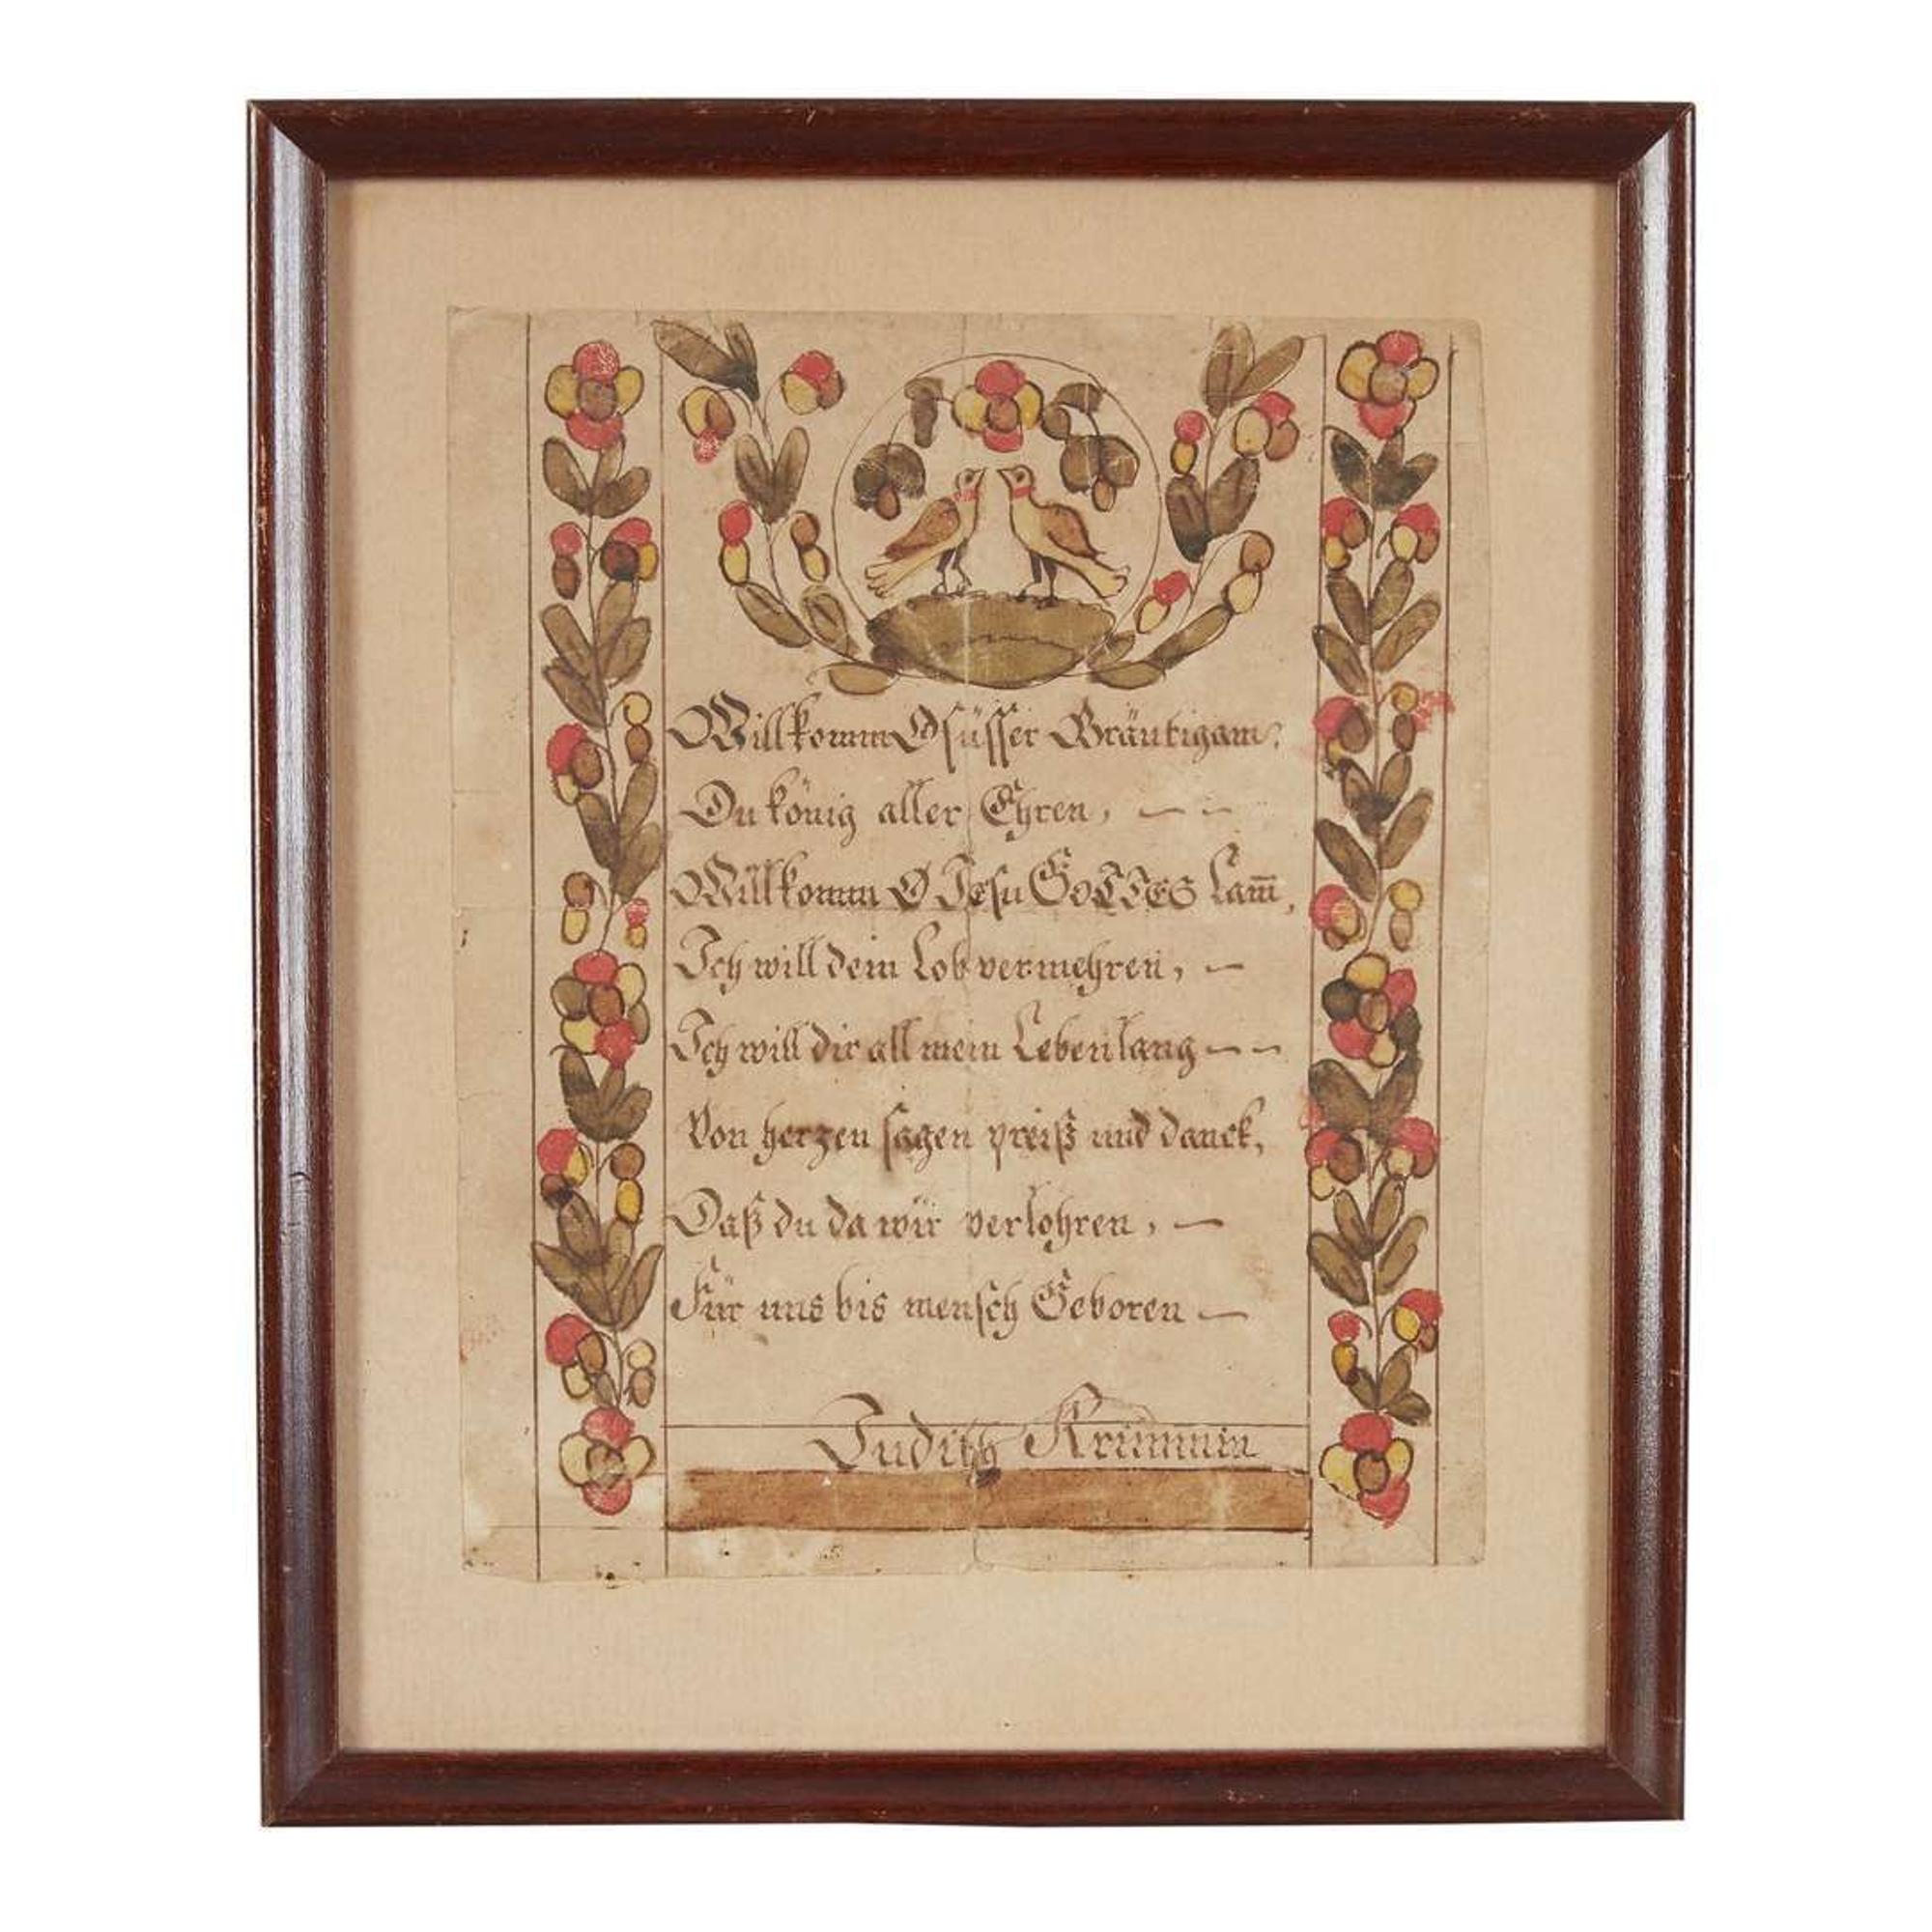 Willkomm O süsser Bräutigam,
Du könig aller Ehren, — —
Willkomm O Jesu GoTTES Lam̅,
Ich will dein Lob vermehren, —
Ich will dir all mein Lebenlang — —
Von herzen sagen preiß und danck,
Daß du da wir verlohren, —
Für uns bis mensch Geboren —
Judith Krimmin